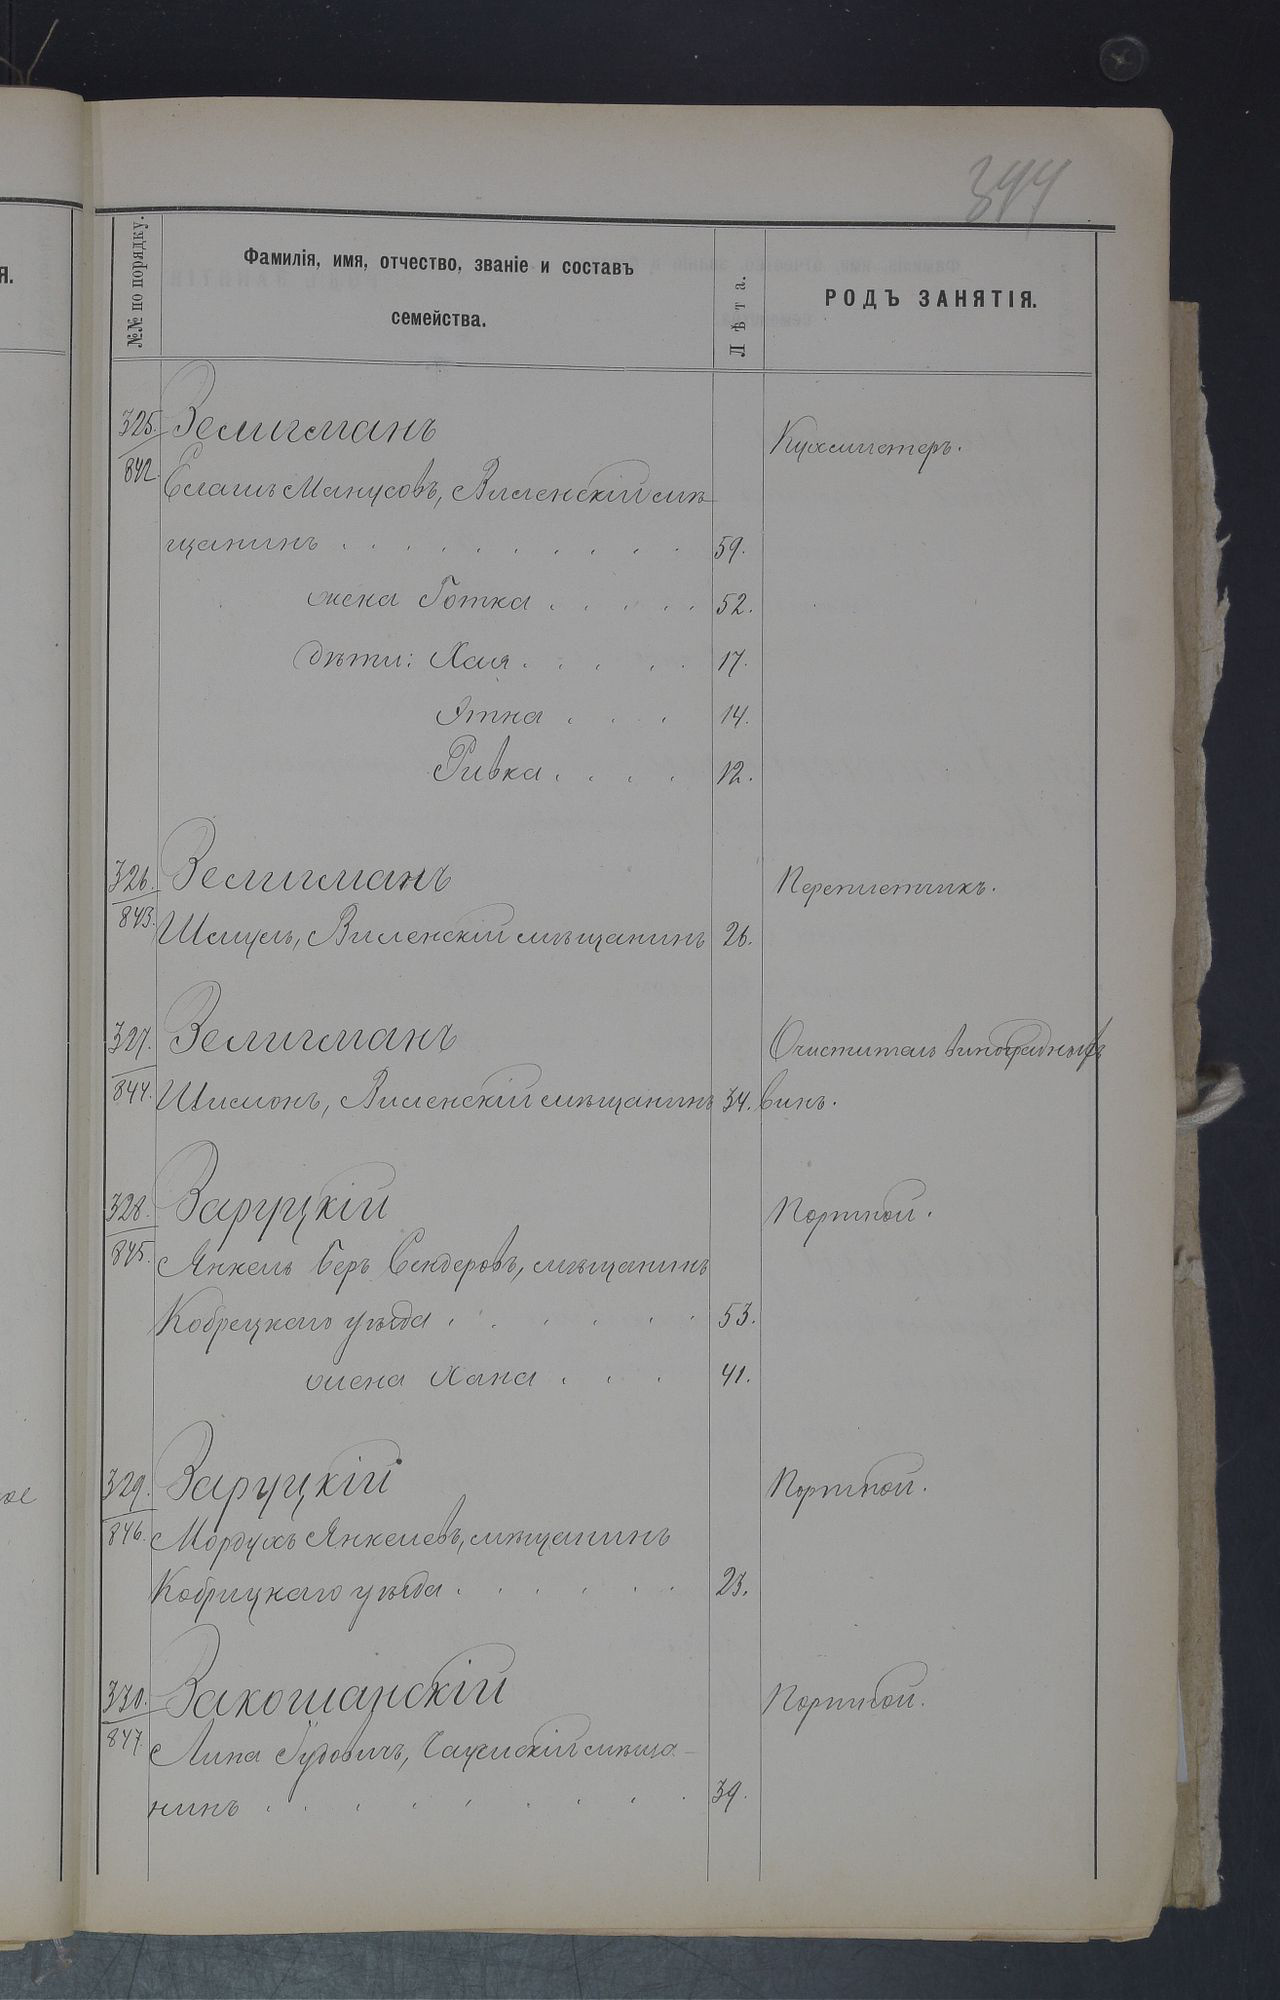 344
№№ по порядку.
Фамилія, имя, отчество, званіе и составъ
семейства.
Лѣта.
РОДЪ ЗАНЯТІЯ.
я.
325. Зелигманъ Кухмистеръ.
842. Манусовъ, Виленскій мѣ
щанинъ . . . . . . . . . . 59.
жена Готка . . . . . 52.
дѣти: Хая . . . . . 17.
Этна . . . . 14.
Ривка . . . . 12.
326. Зелигманъ Переписчикъ.
843. Шмуль, Виленскій мѣщанинъ 26.
327. Зелигманъ Очиститель виноградныхъ
844. Шимонъ, Виленскій мѣщанинъ 34. винъ.
328. Заруцкій Портной.
845. Янкель Беръ Сендеровъ, мѣщанинъ
Кобрецкаго уѣзда . . . . . . 53.
жена Хана . . . 41.
329. Заруцкій Портной.
846. Мордухъ Янкелевъ, мѣщанинъ
Кобрицкаго уѣзда . . . . . . 23.
330. Закошанскій Портной.
847. Липа Гудовичъ, мѣща-
нинъ . . . . . . . . . 39.